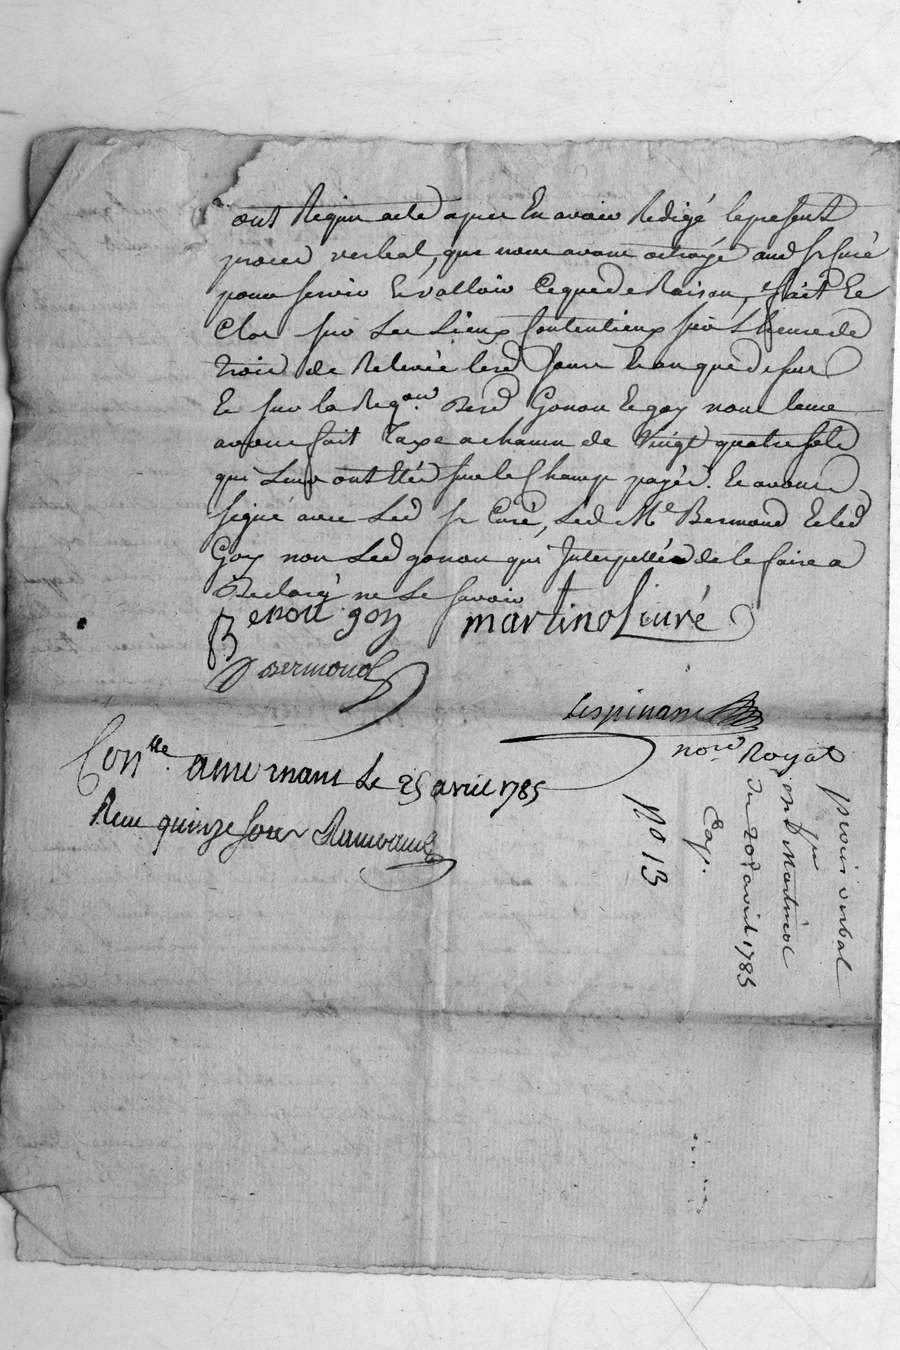 ont Requis acte apres En avoir Redigé le present
proces verbal, que nous avons octroyé aud sr Curé
pour servir Et valloir Ce que de Raison, fait Et
Clos sur Les Lieux Contentieux sur L'heure de
trois de Relevée lesd Jour Et an que dessus
Et sur la Reqon. Desd Gonon Et goy nous leur
avons fait Taxe a chacun de Vingt quatre sols
qui Leur ont Etés sur le Champ payés. Et avons
signé avec Led sr Curé, Led Me Bermond Et led
Goy non Led gonon qui Interpellé de le faire a
Declaré ne Le savoir
Benoit goy martinol curé
Bermond
Lespinasse
nore Royal
Conlle. a le 25 avril 1785
Reçu quinze sols
proces verbal
pr Mr Martinol
Du 20 avril 1785
Coy.
No 13